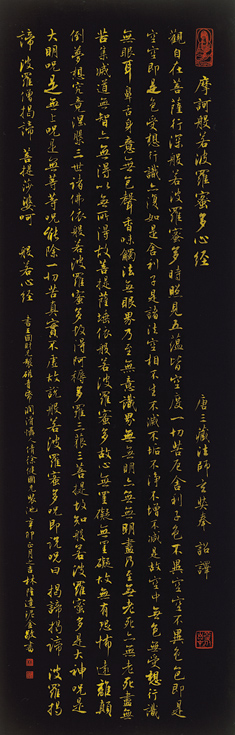 摩訶般若波羅蜜多心經 唐三藏法師玄奘奉詔譯
觀自在菩薩行深般若波羅蜜多時照見五蘊皆空度一切苦厄舍利子色不異空空不異色色即是
空空即是色受想行識亦復如是舍利子是諸法空相不生不滅不垢不淨不增不減是故空中無色無受想行識
無眼耳鼻舌身意無色聲香味觸法無眼界乃至無意識界無無明亦無無明盡乃至無老死亦無老死盡無
苦集滅道無智亦無得以無所得故菩提薩埵依般若波羅蜜多故心無罣礙無罣礙故無有恐怖遠離顛
倒夢想究竟涅槃三世諸佛依般若波羅蜜多故得阿耨多羅三藐三菩提故知般若波羅蜜多是大神咒是
大明咒是無上咒是無等等咒能除一切苦真實不虛故說般若波羅蜜多咒即說咒曰揭諦揭諦 波羅揭
諦 波羅僧揭諦 菩提沙婆呵 般若心經 辛卯 林隆達泥金敬書